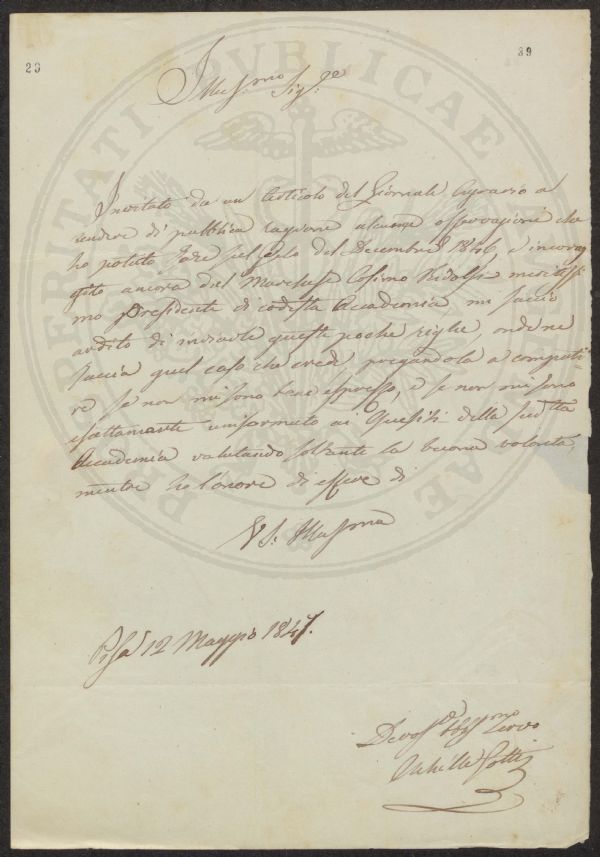 23
39
Illus.mo Sig.re
Invitato da un Articolo del Giornale Agrario a
rendere di pubblica ragione alcune osservazioni che
ho potuto fare sul gelo del Decembre 1846, e incorag
gito ancora dal Marchese Cosimo Ridolfi meritissi
mo Presidente di codesta Accademia mi faccio
ardito di inviarle queste poche righe, onde ne
faccia quel caso che crede, pregandola a compati
re se non mi sono bene espresso, e se non mi sono
esattamente uniformato ai Quesiti della sud.tta
Accademia valutando soltanto la buona volontà,
mentre ho l'onore di essere di
V S. Illusma
Pisa 12 Maggio 1847.
Devoss.o Obbg.mo Servo
Achille Gotti
PROSPERITATI PUBLICAE